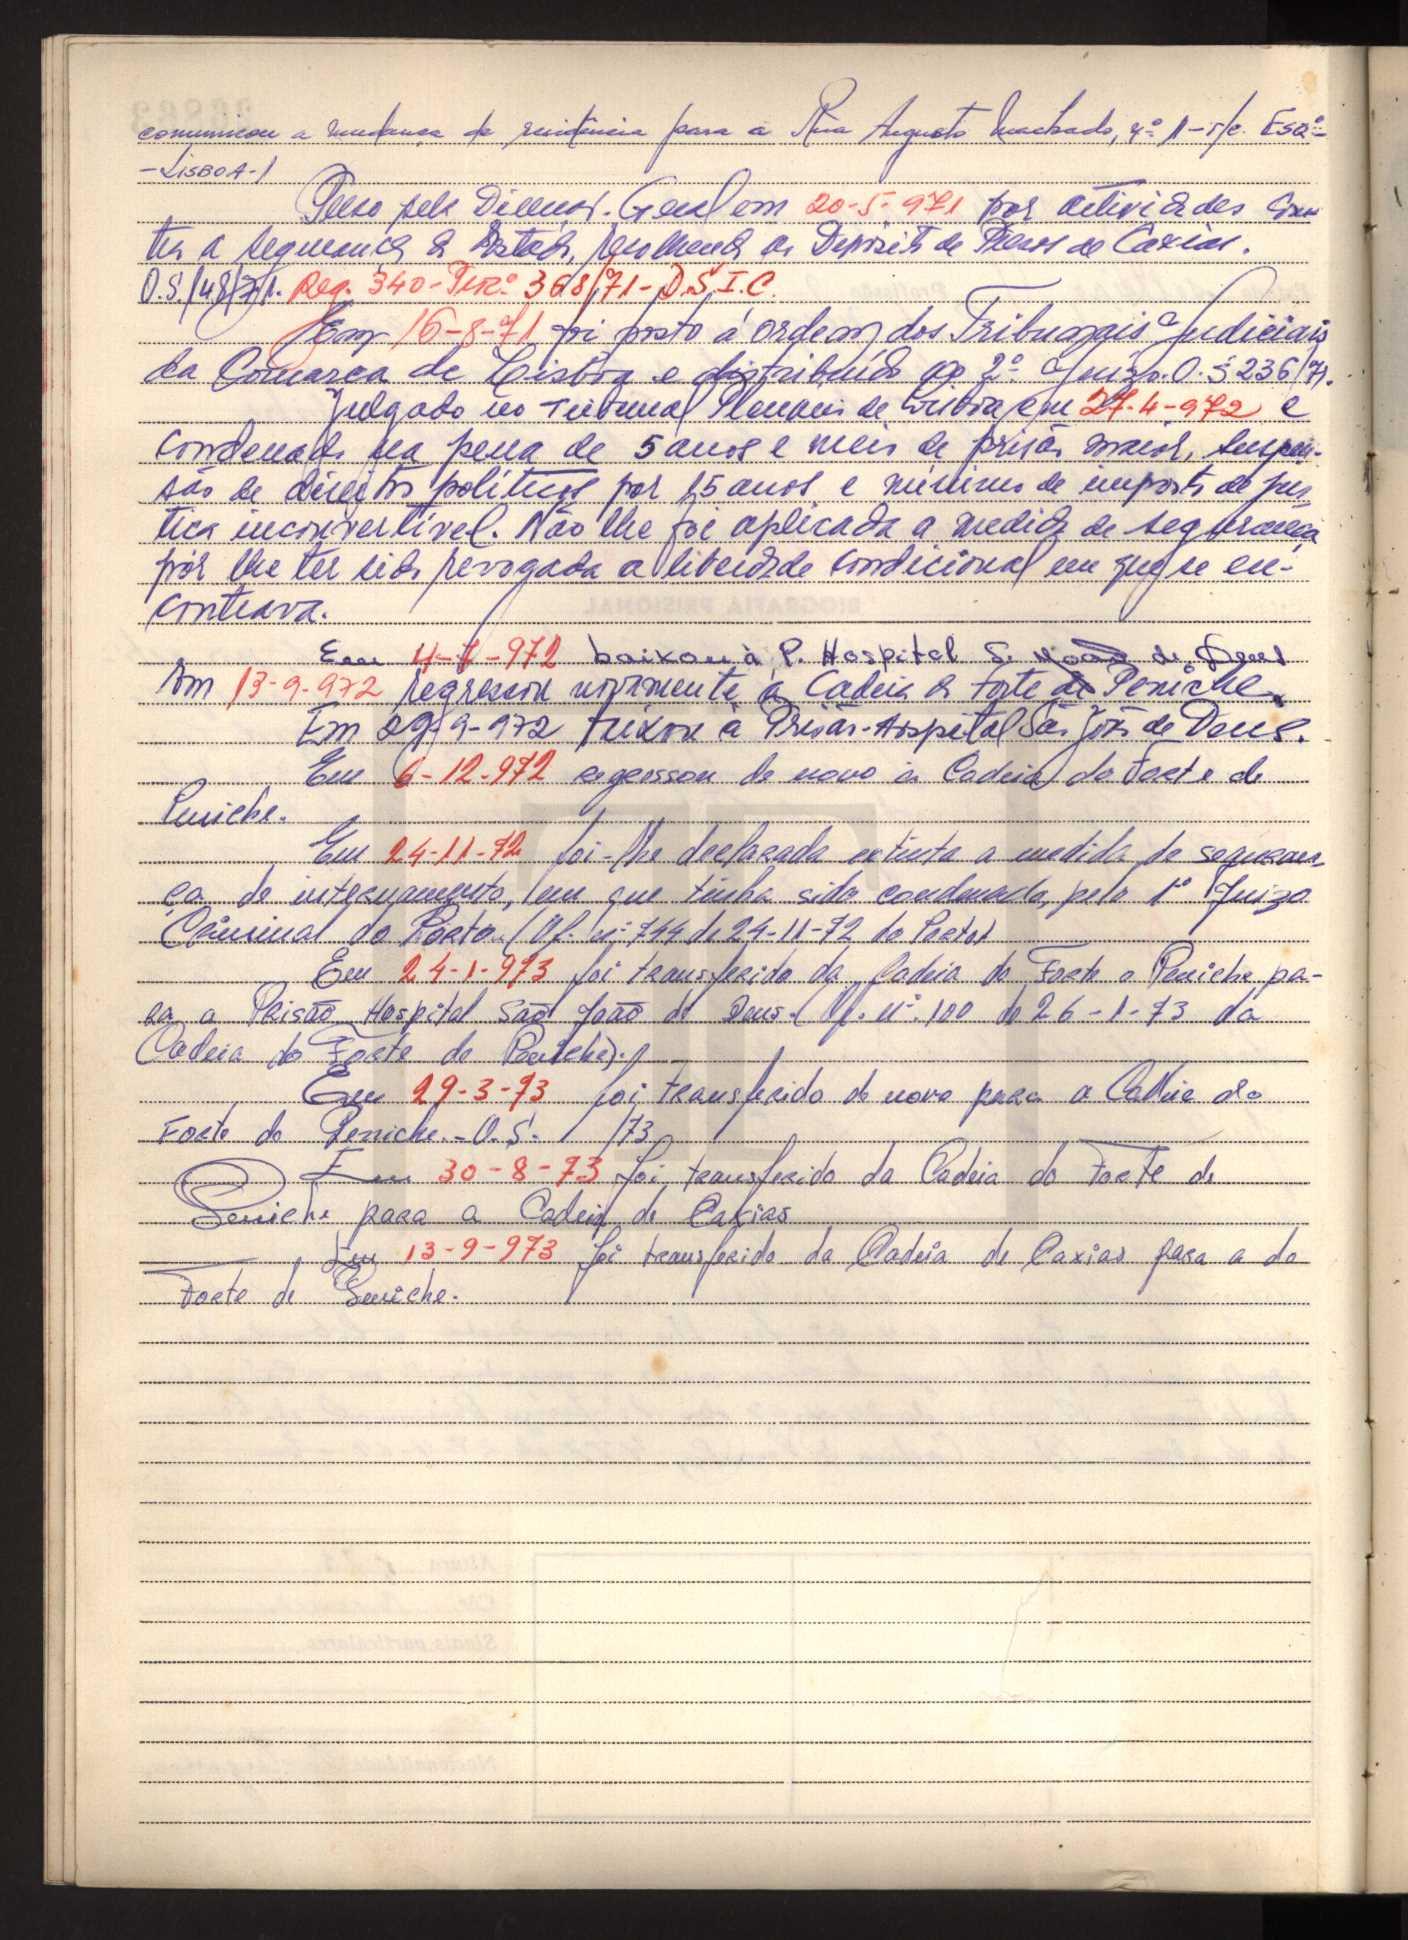 comunicou a mudança de residência para a Rua Augusto Machado, nº 11-r/c. Esqº-
-LISBOA-1
Preso pela Direcção-Geral em 20-5-971 por actividades con-
tra a segurança do Estado, recolhendo ao Depósito de Presos de Caxias.
O.S./148/71. Reg. 340-Percº 368/71-D.S.I.C.
Em 16-8-71 foi posto á ordem dos Tribunais Judiciais
da Comarca de Lisboa e distribuído ao 2º Juízo. O.S 236/71.
Julgado no Tribunal Plenário de Lisboa em 27-4-972 e
condenado na pena de 5 anos e meio de prisão maior, suspen-
são de direitos políticos por 15 anos e mínimo de imposto de jus-
tiça inconvertível. Não lhe foi aplicada a medida de segurança
por lhe ter sido revogada a liberdade condicional em que se en-
contrava.
Em 4-7-972 baixou à P. Hospital S. João de Deus
Em 13-9-972 regressou novamente à Cadeia do Forte de Peniche.
Em 29-9-972 baixou à Prisão-Hospital São João de Deus.
Em 6-12-972 regressou de novo à Cadeia do Forte de
Peniche.
Em 24-11-72 foi-lhe declarada extinta a medida de seguran-
ça de internamento, em que tinha sido condenado, pelo 1º Juizo
Criminal do Porto. (Of. nº 744 de 24-11-72 do Porto)
Em 24-1-973 foi transferido da Cadeia do Forte o Peniche pa-
ra a Prisão Hospital São João de Deus. (Of. nº. 100 de 26-1-73 da
Cadeia do Forte de Peniche).
Em 29-3-73 foi transferido de novo para a Cadeia do
Forte de Peniche.-O.S. /73
Em 30-8-73 foi transferido da Cadeia do Forte de
Peniche para a Cadeia de Caxias
Em 13-9-973 foi transferido da Cadeia de Caxias para a do
Forte de Peniche.